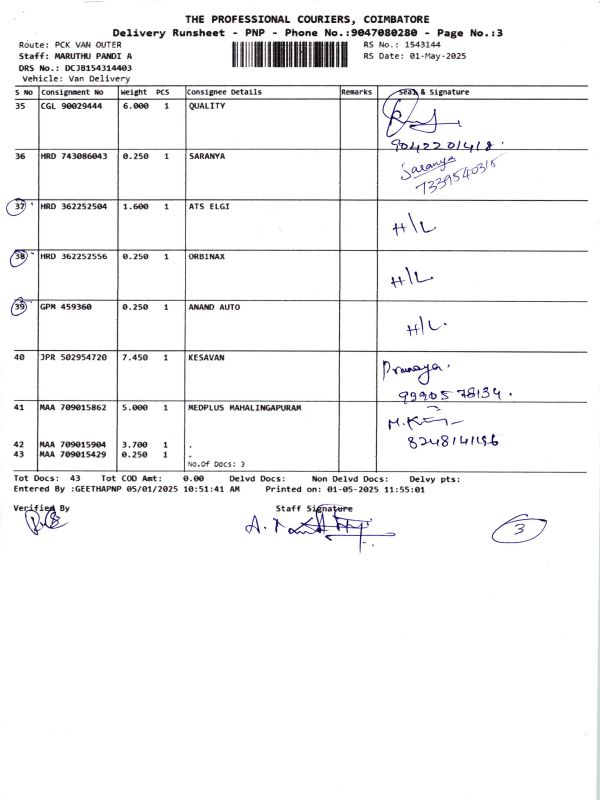 THE PROFESSIONAL COURIERS, COIMBATORE
Delivery Runsheet - PNP - Phone No.:9047080280 - Page No.:3
Route: PCK VAN OUTER RS No.: 1543144
Staff: MARUTHU PANDI A RS Date: 01-May-2025
DRS No.: DCJB154314403
Vehicle: Van Delivery
S No Consignment No Weight PCS Consignee Details Remarks Seal & Signature
35 CGL 90029444 6.000 1 QUALITY
9042201418.
36 HRD 743086043 0.250 1 SARANYA Saranya
7339540315
37 HRD 362252504 1.600 1 ATS ELGI H/L
38 HRD 362252556 0.250 1 ORBINAX H/L
39 GPM 459360 0.250 1 ANAND AUTO H/L
40 JPR 502954720 7.450 1 KESAVAN
99905 78134.
41 MAA 709015862 5.000 1 MEDPLUS MAHALINGAPURAM
8248141196
42 MAA 709015904 3.700 1 .
43 MAA 709015429 0.250 1 .
No.Of Docs: 3
Tot Docs: 43 Tot COD Amt: 0.00 Delvd Docs: Non Delvd Docs: Delvy pts:
Entered By :GEETHAPNP 05/01/2025 10:51:41 AM Printed on: 01-05-2025 11:55:01
Verified By Staff Signature
3